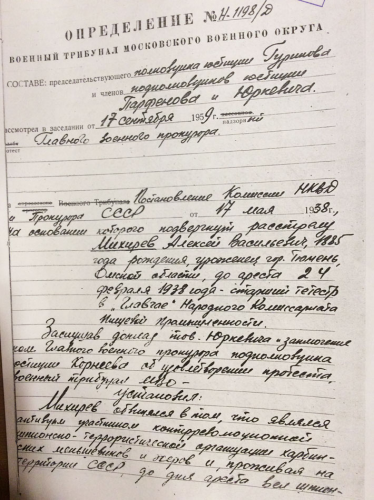 ОПРЕДЕЛЕНИЕ № Н-1198/Д
ВОЕННЫЙ ТРИБУНАЛ МОСКОВСКОГО ВОЕННОГО ОКРУГА
СОСТАВЕ: председательствующего полковника юстиции Гуринова
и членов подполковников юстиции
Парфенова и Юркевича.
рассмотрел в заседании от 17 сентября 1959 г. надзорный
Главного военного прокурора
Военного Трибунала Постановление Комиссии НКВД
и Прокурора СССР от 17 мая 1938 г.,
на основании которого подвергнут расстрелу
Михирев Алексей Васильевич, 1885
года рождения, уроженец гор. Тюмень,
Омской области, до ареста 24
февраля 1938 года - старший тетестр
в „Главчае" Народного Комиссариата
Пищевой Промышленности.
Заслушав доклад тов. Юркевича и заключение
пом. Главного военного прокурора подполковника
юстиции Корнеева об удовлетворении протеста,
военный трибунал МВО -
установил:
Михирев обвинялся в том, что являлся
активным участником контрреволюционной
шпионско-террористической организации
меньшевиков и эсеров и, проживая на
территории СССР, до дня ареста вел шпион-